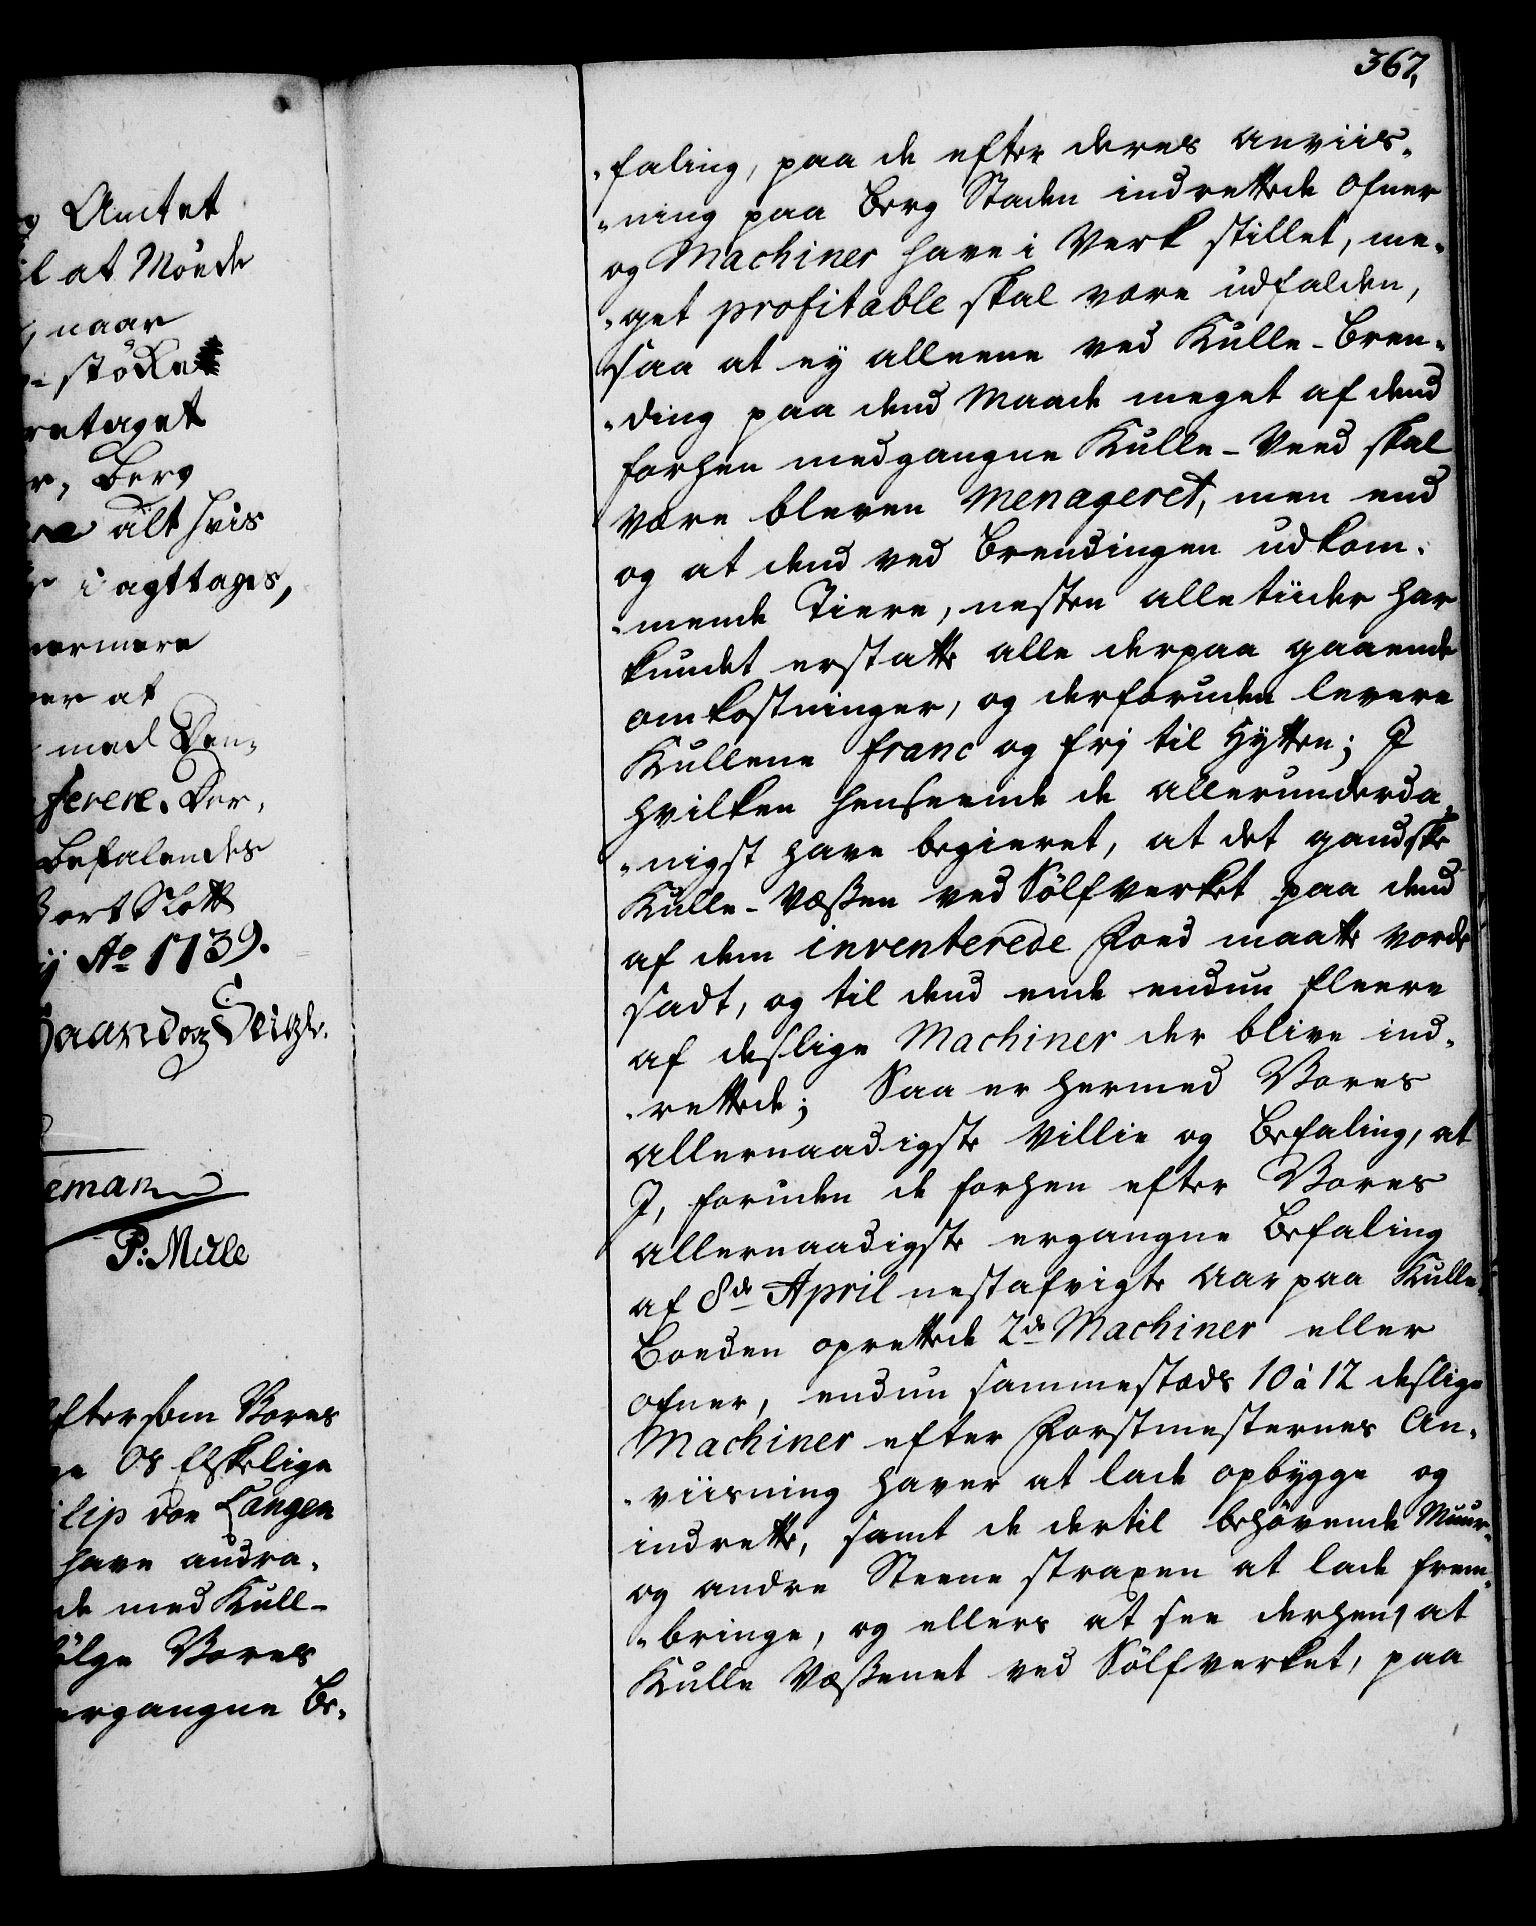 g Amtet
il at Møede
naar
støcke
retaget
r, Berg
alt hvis
i agttages,
nermere
er at
med Den,
ferere. Der,
befalendes
Vort Slott
ij Ao 1739.
Haand og Seigl.
eman
P: Mule
Eftersom Vores
Os Elskelige
ilip von Langen
have andra„
de med Kull-
følge Vores
ergangne Be„
367.
„faling, paa de efter deres anviis„
„ning paa Berg Staden indrettede Ofner
og Machiner have i Verk stillet, me„
„get profitable skal være udfalden,
saa at ey alleene ved Kulle-Bren„
„ding paa dend Maade meget af dend
forhen medgangne Kulle-Veed skal
være bleven menageret, men end
og at dend ved Brendingen udkom„
„mende Tiere, nesten alle tiider har
kundet erstatte alle derpaa gaaende
omkostninger, og derforuden levere
Kullene franc og frj til Hytten; I
hvilken henseende de allerunderda„
„nigst have begieret, at det gandske
Kulle-Væßen ved Sölfverket paa dend
af dem inventerede Foed maatte vorde
sadt, og til dend ende endnu fleere
af deslige Machiner der blive ind„
„rettede; Saa er hermed Vores
allernaadigste Villie og Befaling, at
I, foruden de forhen efter Vores
allernaadigste ergangne Befaling
af 8de April nestafvigte Aar paa Kulle„
Boeden oprettede 2de Machiner eller
Ofner, endnu sammestæds 10 à 12 deslige
Machiner efter Forstmesternes An„
„viisning haver at lade opbygge og
indrette, samt de dertil behövende Muur-
og andre Steene straxen at lade frem„
„bringe, og ellers at see derhen, at
Kulle Væßenet ved Sölfverket, paa